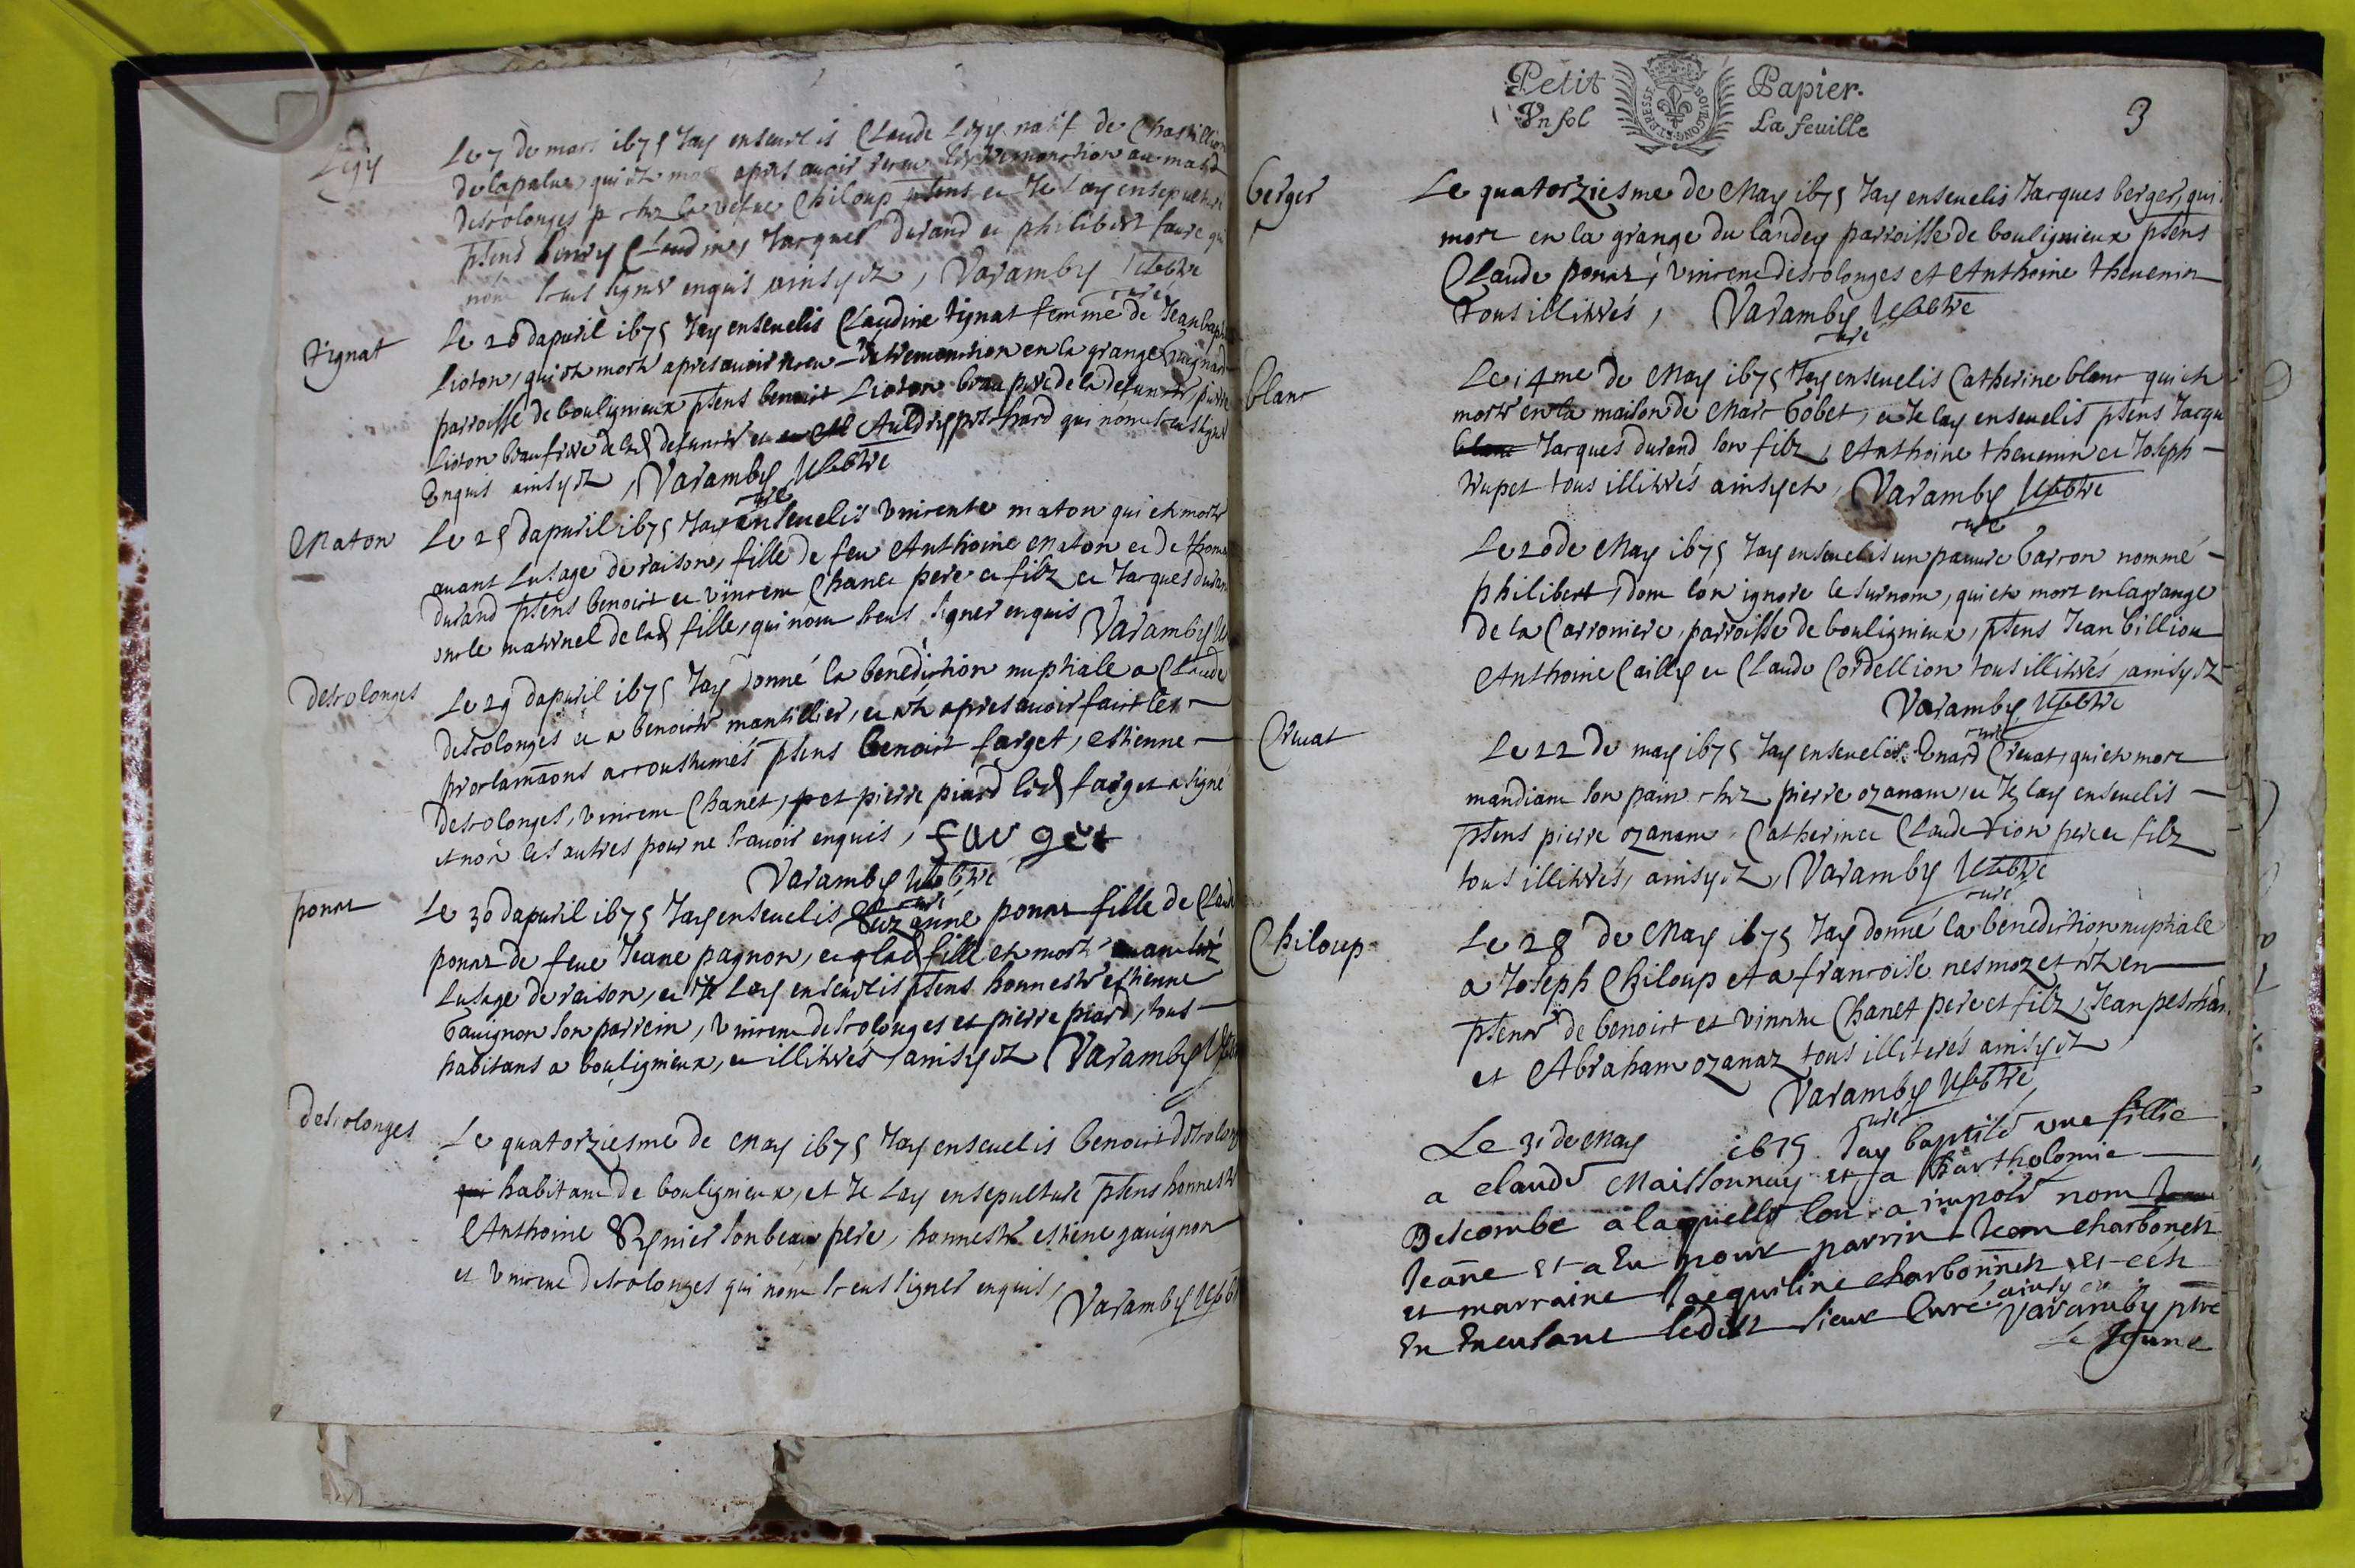 Legy
Le 7 de mars 1675 Jay enseuelis Claude Legy natif de Chastillion
de lapalue, qui est mort apres auoir receu lextremonction au mas
descolonges chez la vefue Chiloup pñts et Je lay ensepulturé
pñts henry Claudine, Jacques durand et philibert faure qui
nont sceus signer enquis ainsy est, Varamby
curé
tignat
Le 20 dapuril 1675 Jay enseuelis Claudine tignat femme de Jean baptiste
Lioton, qui est morte apres auoir receu lextremonction en la grange
parroisse de boulignieux pñts benoist Lioton beau pere de la defuncte pierre
Lioton beaufrere de lad defuncte et Auldry perchard qui nont sceu signer
Enquis ainsy est, Varamby
curé
Maton
Le 25 dapuril 1675 Jay enseuelis vincente maton qui est morte
auant Lusage de raison, fille de feu Anthoine Maton et de thomasse
durand pñts benoist et vincent Chanet pere et filz et Jacques durand
oncle maternel de lad fille, qui nont sceus signer enquis Varamby
descolonges
Le 29 dapuril 1675 Jay donné la benediction nuptiale a Claude
descolonges et a benoiste mantellier, et cest apres auoir fait les
proclamãons accoustumés pñts benoist farget, estienne
descolonges, vincent Chanet, et pierre piard led farget a signé
et non les autres pour ne scauoir enquis, farget
Varamby
curé
ponaz
Le 30 dapuril 1675 Jay enseuelis Suzanne ponaz fille de Claude
ponaz de feue Jeane pagnon, et lad fille est morte auant
Lusage de raison, et Je Lay enseuelis pñts honneste estienne
Gauignon son parrein, vincent descolonges et pierre piard, tous
habitans a boulignieux, et illitrés, ainsy est Varamby
descolonges
Le quatorziesme de May 1675 Jay enseuelis benoist descolonges
qui habitant de boulignieux, et Je Lay ensepulture pñts honneste
Anthoine Reynier son beau pere, honneste estiene gauignon
et vincent descolonges qui nont sceus signer enquis,
Varamby
Petit Papier.
Vn sol La feuille
BRESSE BOURGOGNE
3
berger
Le quatorziesme de May 1675 Jay enseuelis Jacques berger, qui
mort en la grange du landey parroisse de boulignieux pñts
Claude ponaz, vincent descolonges et Anthoine theuenin
tous illitrés, Varamby
curé
blanc
Le 14me de May 1675 Jay enseuelis Catherine blanc qui est
morte en la maison de Marc Gobet, et Je lay enseuelis pñts Jacqu
blanc Jacques durand son filz, Anthoine theuenin et Joseph
trupet tous illitrés ainsy est, Varamby
curé
Le 20 de May 1675 Jay enseuelis un pauure Garcon nommé
philibert, dont lon ignore le surnom, qui est mort en lagrange
de la Carroniere, parroisse de boulignieux, pñts Jean billiou
Anthoine Cailly et Claude Cordellion tous illitrés, ainsy est
Varamby
curé
Creuat
Le 22 de may 1675 Jay enseuelis Enard Creuat, qui est mort
mandiant son pain chez pierre ozanam, et Je lay enseuelis
pñts pierre ozanam, Catherin et Claude tion pere et filz
tous illitrés, ainsy est, Varamby
curé
Chiloup
Le 28 de May 1675 Jay donné la benediction nuptiale
a Joseph Chiloup et a francoise nesmoz et cest en
pñts de benoist et vincent Chanet pere et filz, Jean peschar
et Abraham ozanaz tous illiterés ainsy est
Varamby
curé
Le 31 de May 1675 Jay baptisé une fillie
a claude Maissonnay et a Bartholomie
Descombe a laquelle lon a imposé nom
Jeanne et a Eu pour parrin Jean charbonet
et marraine Jacquiline charbonnet et cest
En Encusant ledict sieur Curé ainsy est Varamby ptre
Le Jeune